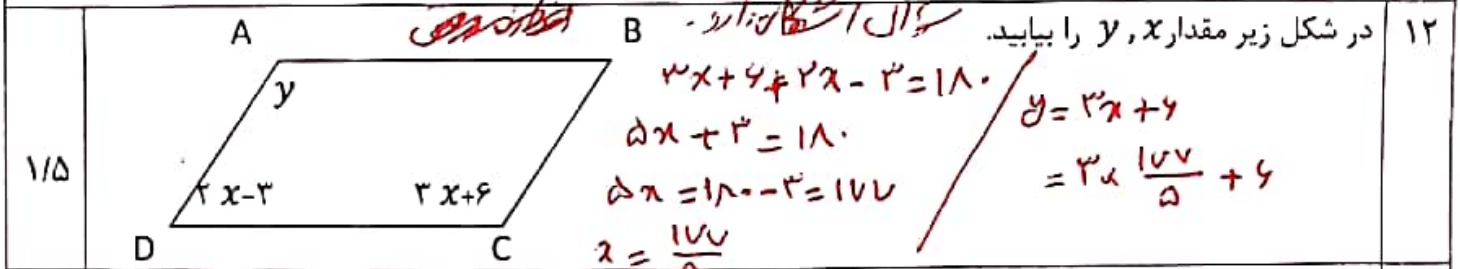 ۱۲ در شکل زیر مقدار x , y را بیابید.
سوال اشکال ندارد.
A B
y
۲ x-۳ ۳ x+۶
D C
۱/۵
۳x+۶+۲x-۳=۱۸۰
۵x+۳=۱۸۰
۵x=۱۸۰-۳=۱۷۷
x=۱۷۷/۵
y=۳x+۶
=۳×۱۷۷/۵+۶